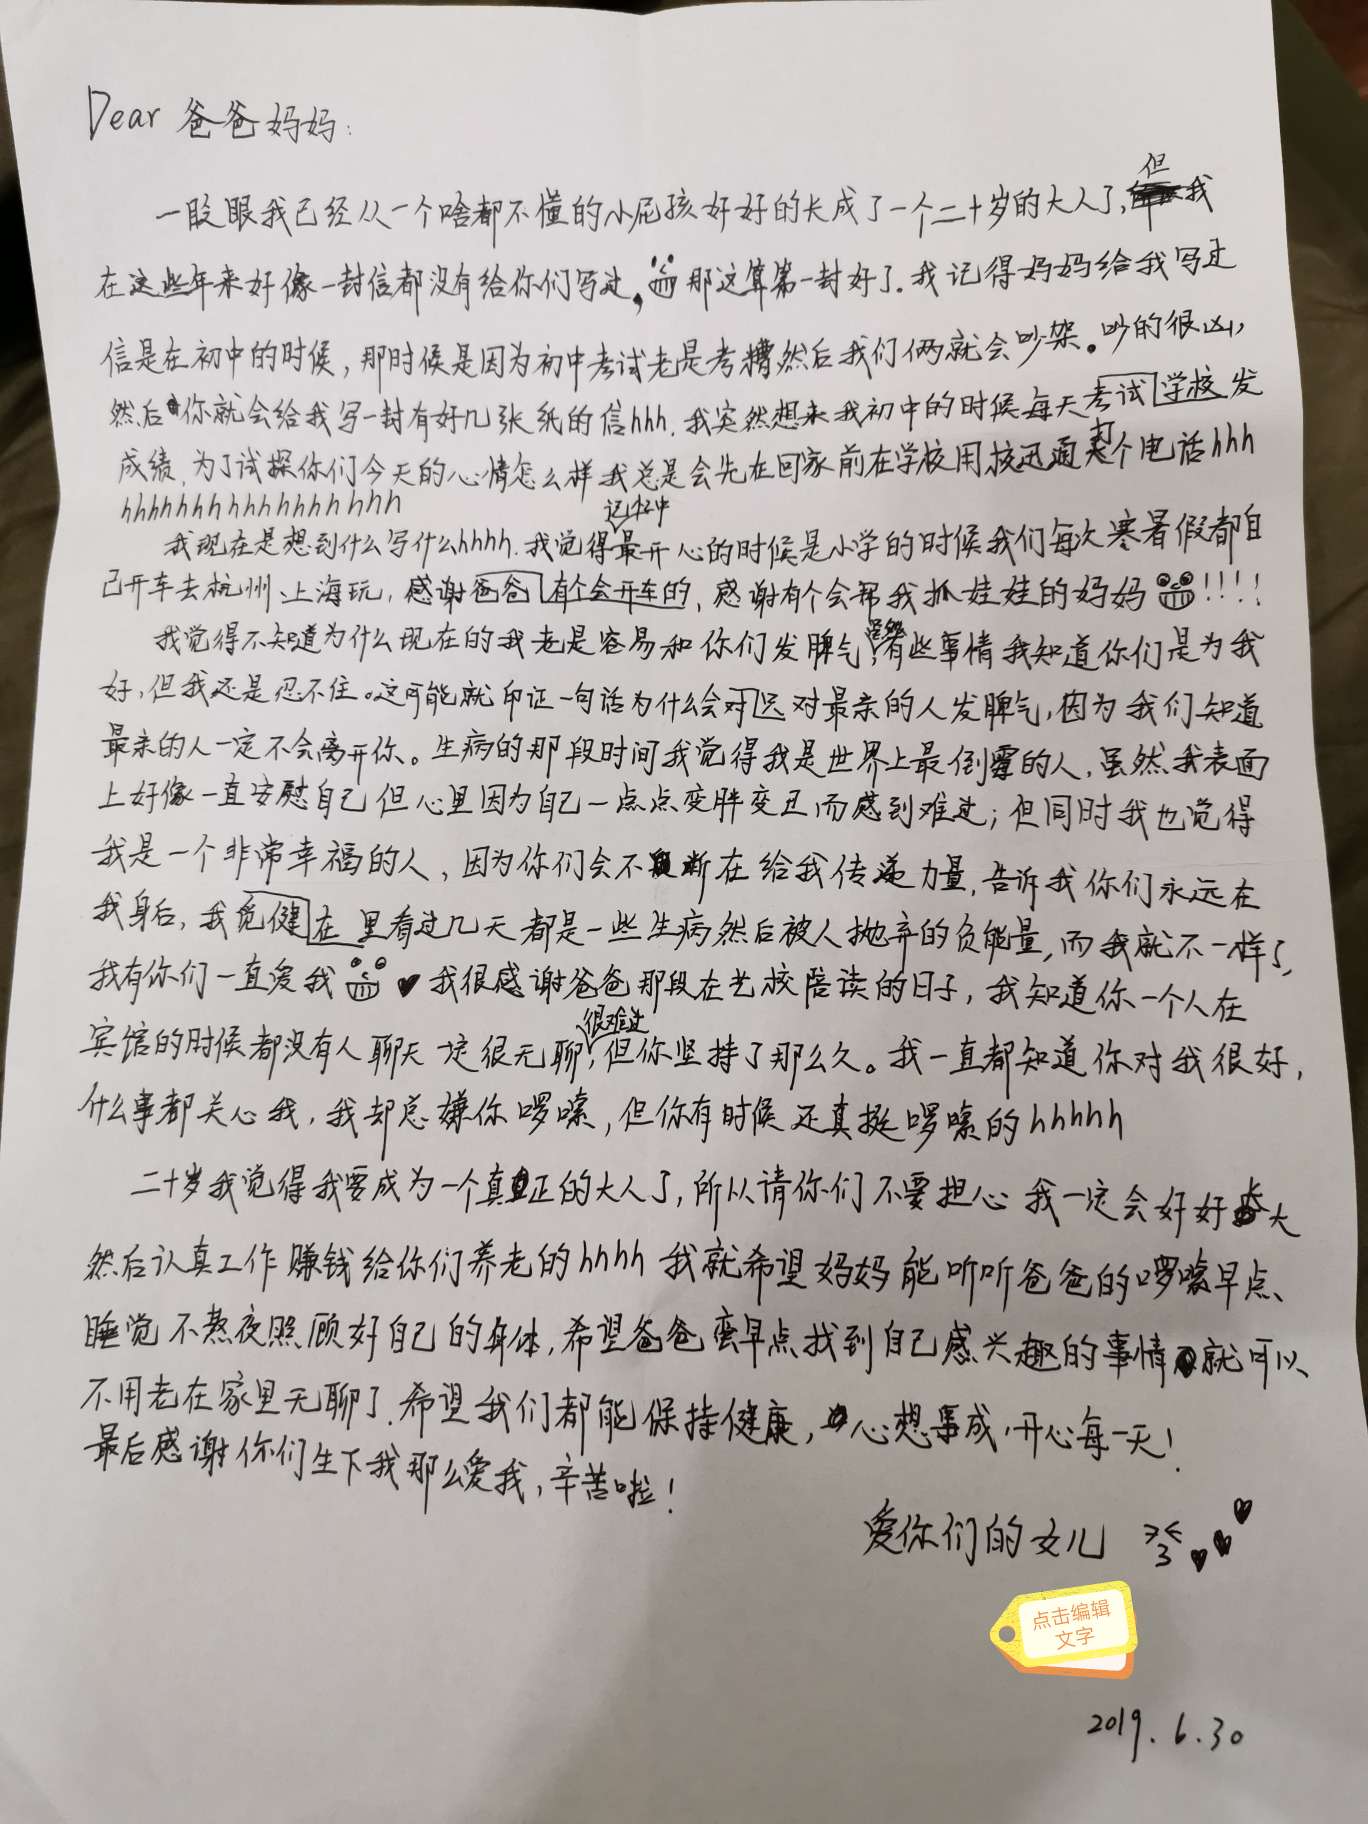 Dear 爸爸妈妈:
一眨眼我已经从一个啥都不懂的小屁孩好好的长成了一个二十岁的大人了,但我
在这些年来好像一封信都没有给你们写过,那这算第一封好了.我记得妈妈给我写过
信是在初中的时候,那时候是因为初中考试老是考糟然后我们俩就会吵架。吵的很凶,
然后你就会给我写一封有好几张纸的信hhh.我突然想来我初中的时候每天考试学校发
成绩,为了试探你们今天的心情怎么样我总是会先在回家前在学校用校迅通打个电话hhh
hhhhhhhhhhhhhhhhhh
我现在是想到什么写什么hhhh.我觉得记忆中最开心的时候是小学的时候我们每次寒暑假都自
己开车去杭州、上海玩,感谢爸爸有个会开车的,感谢有个会帮我抓娃娃的妈妈!!!!
我觉得不知道为什么现在的我老是容易和你们发脾气,虽然有些事情我知道你们是为我
好,但我还是忍不住。这可能就印证一句话为什么会对远对最亲的人发脾气,因为我们知道
最亲的人一定不会离开你。生病的那段时间我觉得我是世界上最倒霉的人,虽然我表面
上好像一直安慰自己但心里因为自己一点点变胖变丑而感到难过;但同时我也觉得
我是一个非常幸福的人,因为你们会不断在给我传递力量,告诉我你们永远在
我身后,我觉健在里看过几天都是一些生病然后被人抛弃的负能量,而我就不一样了,
我有你们一直爱我 ♥ 我很感谢爸爸那段在艺校陪读的日子,我知道你一个人在
宾馆的时候都没有人聊天一定很无聊,很难过但你坚持了那么久。我一直都知道你对我很好,
什么事都关心我,我却总嫌你啰嗦,但你有时候还真挺啰嗦的hhhhh
二十岁我觉得我要成为一个真正的大人了,所以请你们不要担心 我一定会好好长大
然后认真工作赚钱给你们养老的hhhh 我就希望妈妈能听听爸爸的啰嗦早点
睡觉不熬夜照顾好自己的身体,希望爸爸早点找到自己感兴趣的事情就可以
不用老在家里无聊了.希望我们都能保持健康,心想事成,开心每一天!
最后感谢你们生下我那么爱我,辛苦啦!
爱你们的女儿 >3< ♥♥♥
点击编辑
文字
2019.6.30